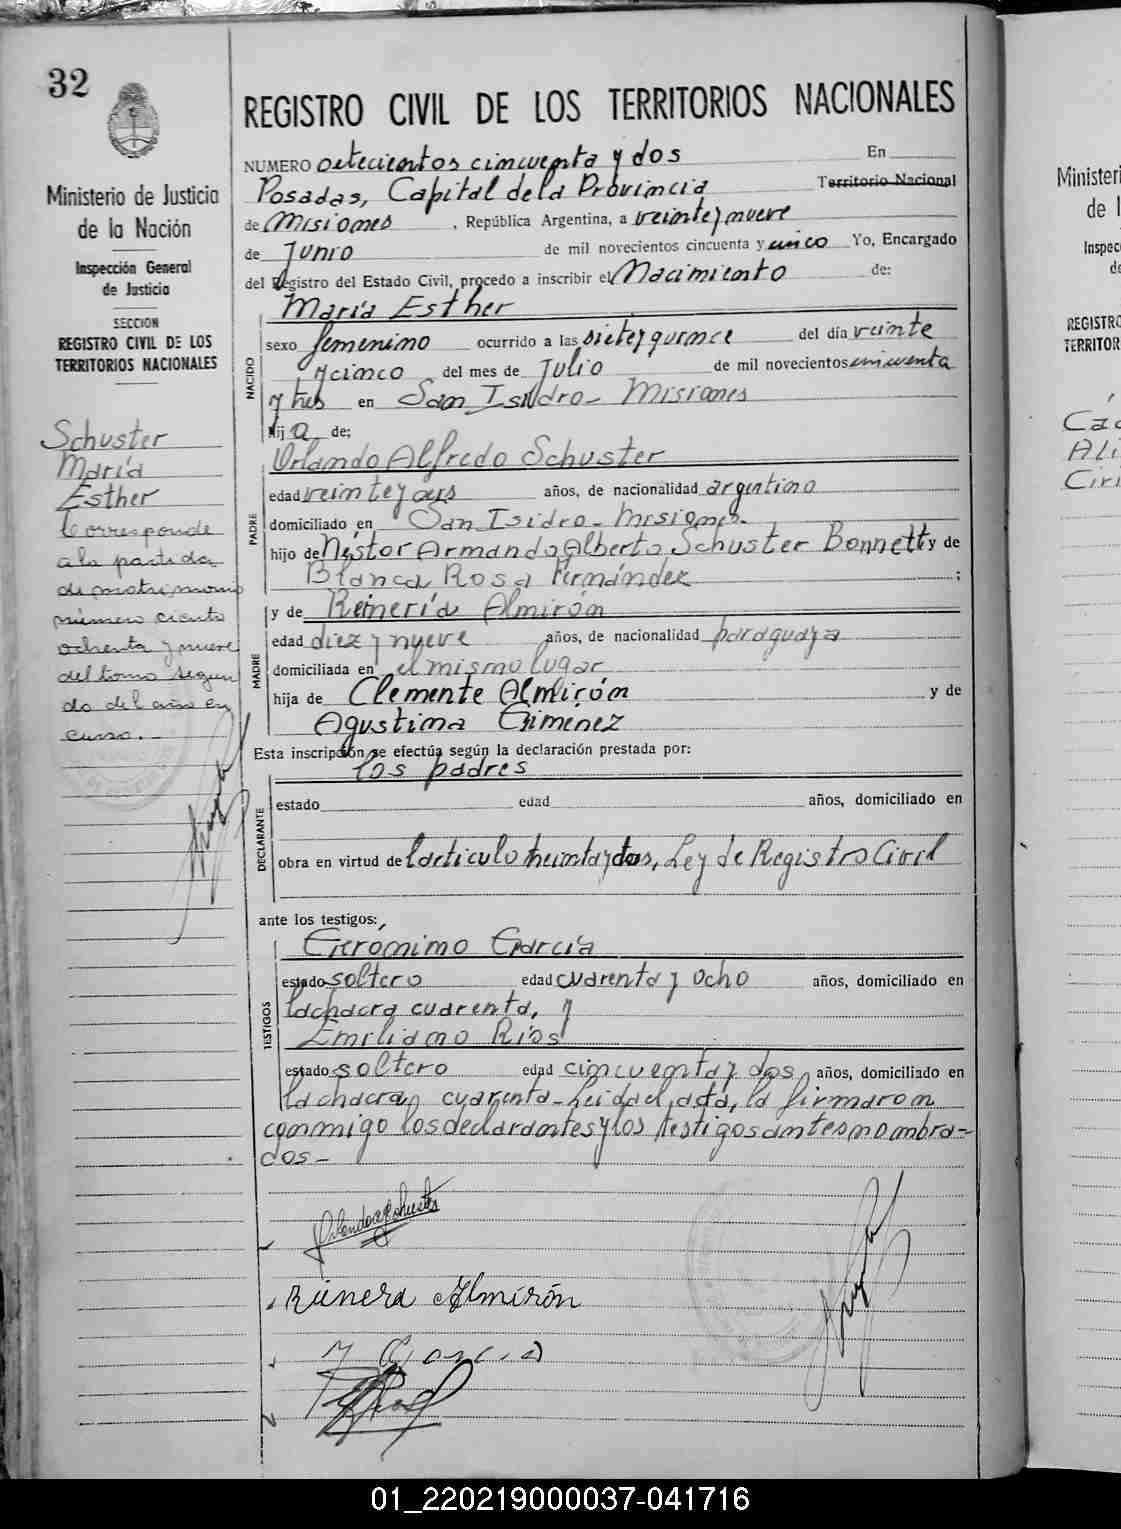 32
Ministerio de Justicia
de la Nación
Inspección General
de Justicia
SECCION
REGISTRO CIVIL DE LOS
TERRITORIOS NACIONALES
Schuster
María
Esther
Corresponde
a la partida
de matrimonio
número ciento
ochenta y nueve
del tomo segun
do del año en
curso.-
REGISTRO CIVIL DE LOS TERRITORIOS NACIONALES
NUMERO setecientos cincuenta y dos En
Posadas, Capital de la Provincia Territorio Nacional
de Misiones, República Argentina, a veinte y nueve
de Junio de mil novecientos cincuenta y cinco Yo, Encargado
del Registro del Estado Civil, procedo a inscribir el Nacimiento de:
María Esther
NACIDO
sexo femenino ocurrido a las siete y quince del día veinte
y cinco del mes de Julio de mil novecientos cincuenta
y tres en San Isidro - Misiones
hija de:
PADRE
Orlando Alfredo Schuster
edad veinte y años, de nacionalidad argentino
domiciliado en San Isidro - Misiones.
hijo de Néstor Armando Alberto Schuster Bonnett y de
Blanca Rosa Fernández ;
MADRE
y de Reineria Almirón
edad diez y nueve años, de nacionalidad paraguaya
domiciliada en el mismo lugar
hija de Clemente Almirón y de
Agustina Giménez
Esta inscripción se efectúa según la declaración prestada por:
DECLARANTE
los padres
estado edad años, domiciliado en
obra en virtud del artículo treinta y dos, Ley de Registro Civil
ante los testigos:
TESTIGOS
Gerónimo García
estado soltero edad cuarenta y ocho años, domiciliado en
la chacra cuarenta, y
Emiliano Ríos
estado soltero edad cincuenta y dos años, domiciliado en
la chacra cuarenta - Leida el acta, la firmaron
conmigo los declarantes y los testigos antes nombra-
dos-
Orlando A Schuster
Reinera Almirón
García
Ministeri
de l
Inspec
de
REGISTRO
TERRITOR
Các
Ali
Ciri
01_220219000037-041716